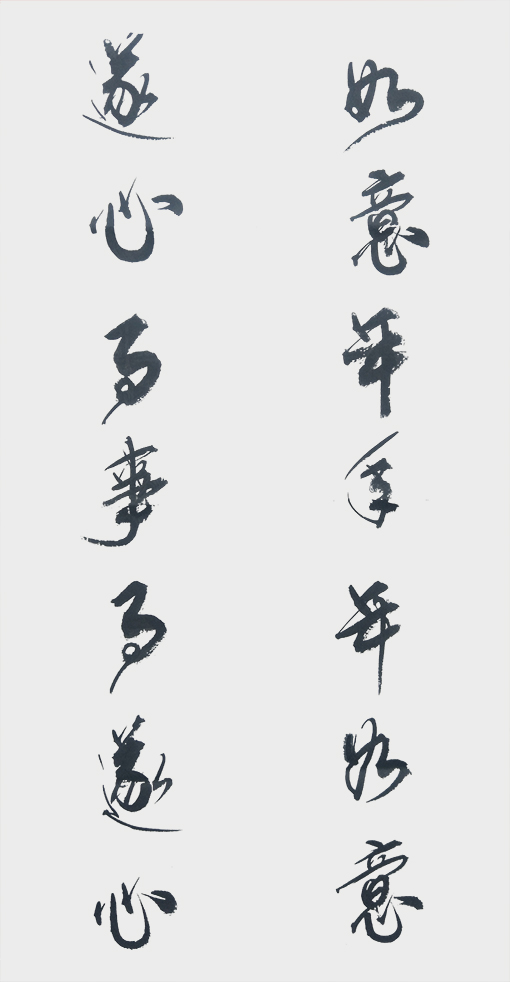 如意年年年如意
遂心事事事遂心